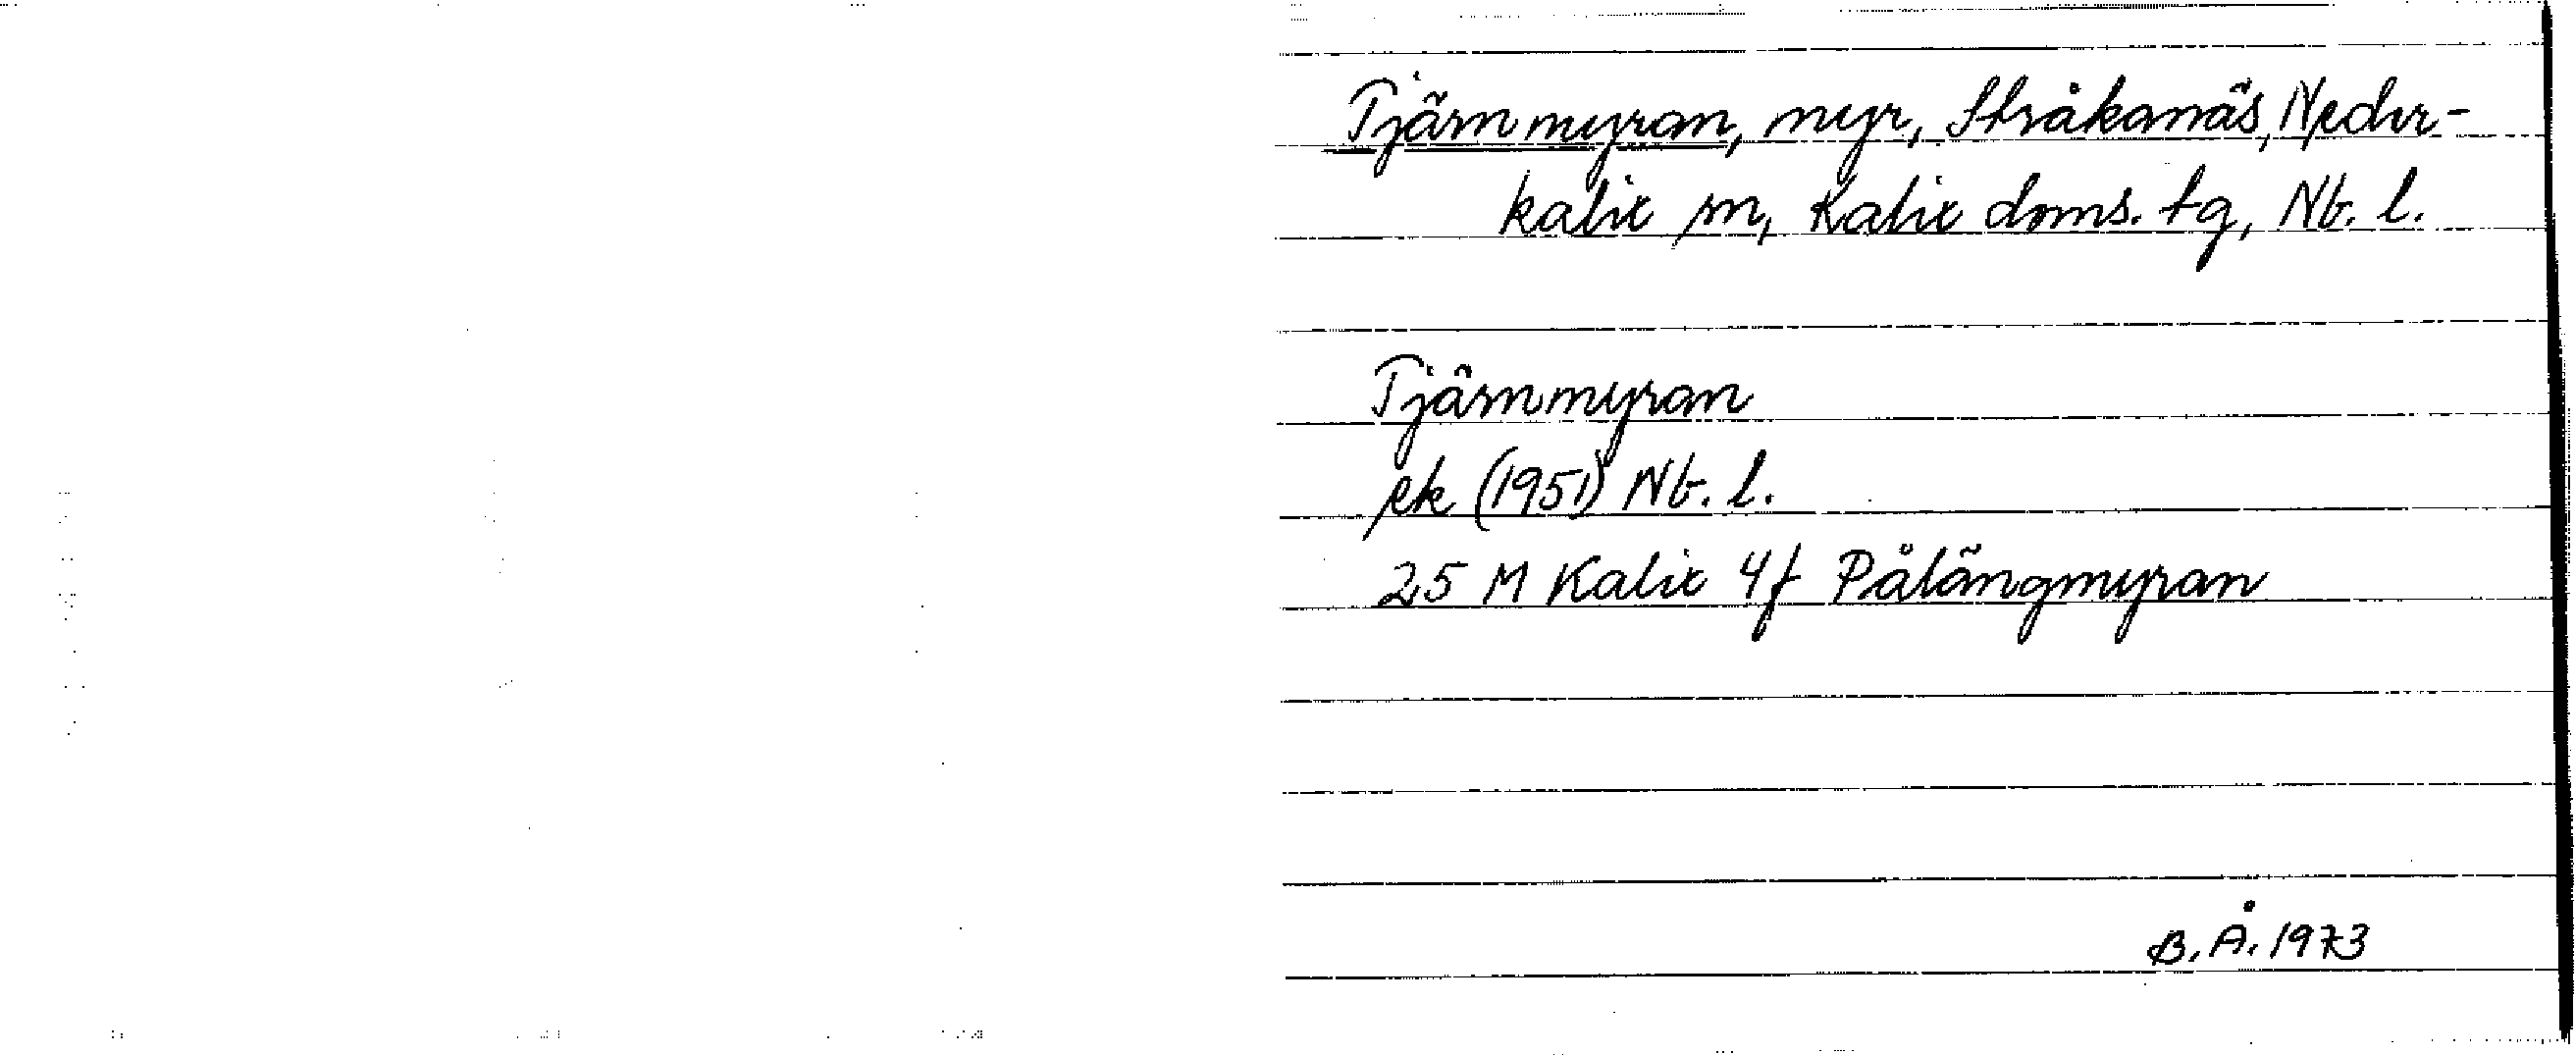 Tjärnmyran, myr, Stråkanäs, Neder-
kalix sn, Kalix doms. tg, Nb. l.
Tjärnmyran
ek (1951) Nb. l.
25 M Kalix 4f Pålängmyran
B. Å. 1973